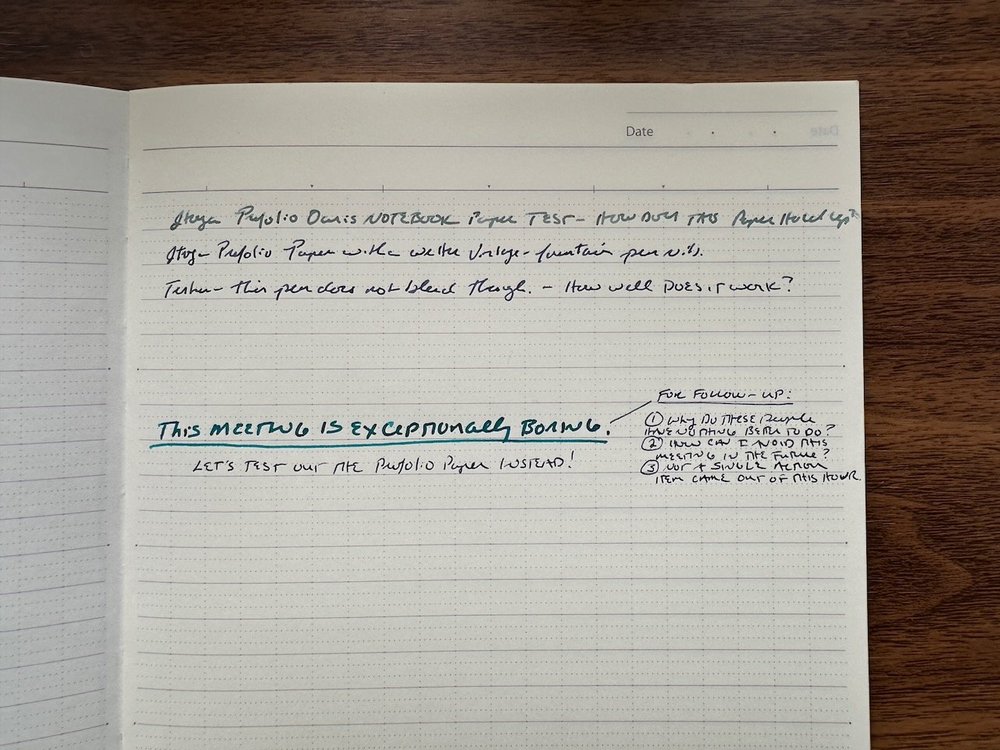 Date
Itoya Profolio Oasis NOTEBOOK Paper TEST - HOW DOES THIS Paper Hold up?
Itoya Profolio Paper with a fountain pen nib.
this pen does not bleed though. - How well DOES IT WORK?
FOR FOLLOW-UP:
THIS MEETING IS EXCEPTIONALLY BORING.
① WHY DO THESE PEOPLE
HAVE NOTHING BETTER TO DO?
② HOW CAN I AVOID THIS
MEETING IN THE FUTURE?
③ NOT A SINGLE ACTION
ITEM CAME OUT OF THIS HOUR.
LET'S TEST OUT THE Profolio Paper INSTEAD!